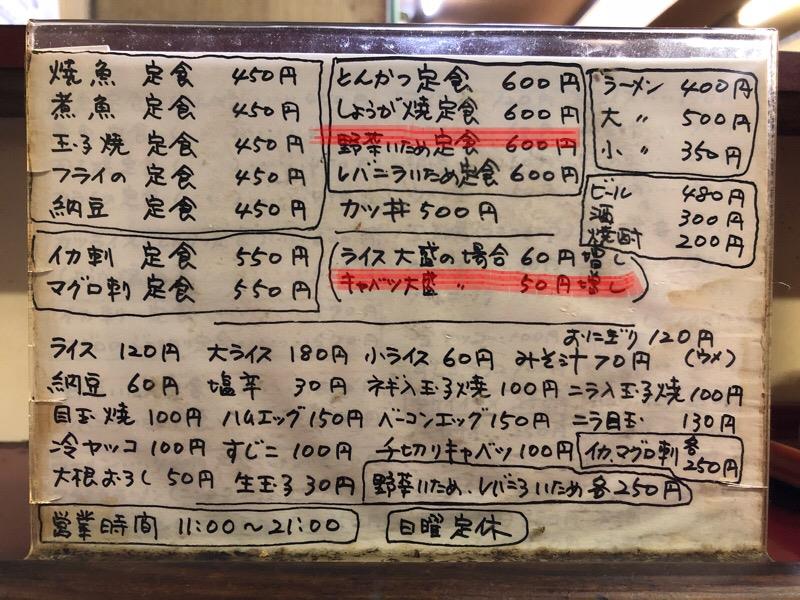 焼魚 定食 450円
煮魚 定食 450円
玉子焼 定食 450円
フライの 定食 450円
納豆 定食 450円
イカ刺 定食 550円
マグロ刺 定食 550円
とんかつ定食 600円
しょうが焼定食 600円
野菜いため定食 600円
レバニラいため定食 600円
カツ丼 500円
(ライス大盛の場合 60円増し
キャベツ大盛 〃 50円増し)
ラーメン 400円
大 〃 500円
小 〃 350円
ビール 480円
酒 300円
焼酎 200円
おにぎり 120円
ライス 120円 大ライス 180円 小ライス 60円 みそ汁 70円 (ウメ)
納豆 60円 塩辛 30円 ネギ入玉子焼 100円 ニラ入玉子焼 100円
目玉焼 100円 ハムエッグ 150円 ベーコンエッグ 150円 ニラ目玉 130円
冷ヤッコ 100円 すじこ 100円 千切りキャベツ 100円 イカ、マグロ刺 各250円
大根おろし 50円 生玉子 30円 野菜いため、レバニラいため 各250円
営業時間 11:00~21:00 日曜定休